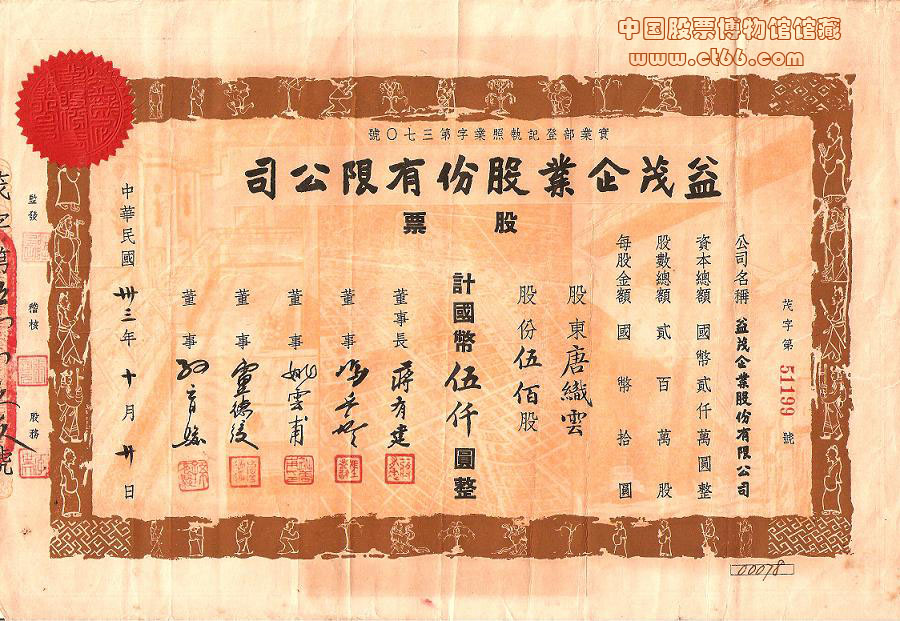 中国股票博物馆馆藏
www.ct66.com
實業部登記執照業字第三七〇號
益茂企業股份有限公司
股票
茂字第51199號
公司名稱 益茂企業股份有限公司
資本總額 國幣貳仟萬圓整
股數總額 貳百萬股
每股金額 國幣拾圓
股東唐織雲
股份伍佰股
計國幣伍仟圓整
董事長 蔣有建
董事
董事 姚雲甫
董事
董事
中華民國卅三年十月廿日
監發
稽核
股務
00078